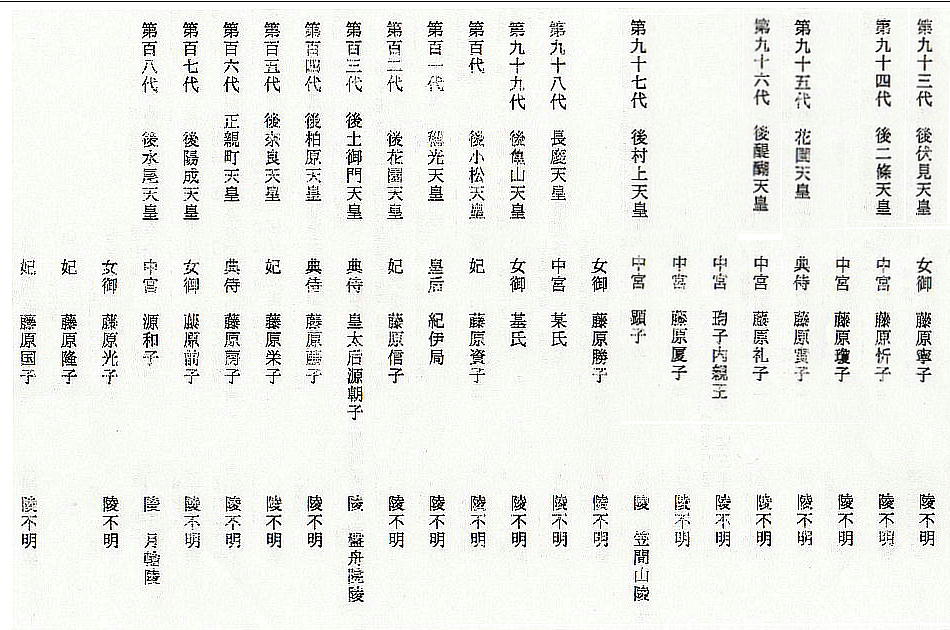 第九十三代 後伏見天皇 女御 藤原寧子 陵不明
第九十四代 後二條天皇 中宮 藤原忻子 陵不明
中宮 藤原瓊子 陵不明
第九十五代 花園天皇 典侍 藤原實子 陵不明
第九十六代 後醍醐天皇 中宮 藤原礼子 陵不明
中宮 珣子内親王 陵不明
中宮 藤原厦子 陵不明
第九十七代 後村上天皇 中宮 顕子 陵 笠間山陵
女御 藤原勝子 陵不明
第九十八代 長慶天皇 中宮 某氏 陵不明
第九十九代 後亀山天皇 女御 某氏 陵不明
第百代 後小松天皇 妃 藤原資子 陵不明
第百一代 稱光天皇 皇后 紀伊局 陵不明
第百二代 後花園天皇 妃 藤原信子 陵不明
第百三代 後土御門天皇 典侍 皇太后源朝子 陵 盤舟院陵
第百四代 後柏原天皇 典侍 藤原藤子 陵不明
第百五代 後奈良天皇 妃 藤原栄子 陵不明
第百六代 正親町天皇 典侍 藤原房子 陵不明
第百七代 後陽成天皇 女御 藤原前子 陵不明
第百八代 後水尾天皇 中宮 源和子 陵 月輪陵
女御 藤原光子 陵不明
妃 藤原隆子
妃 藤原国子 陵不明